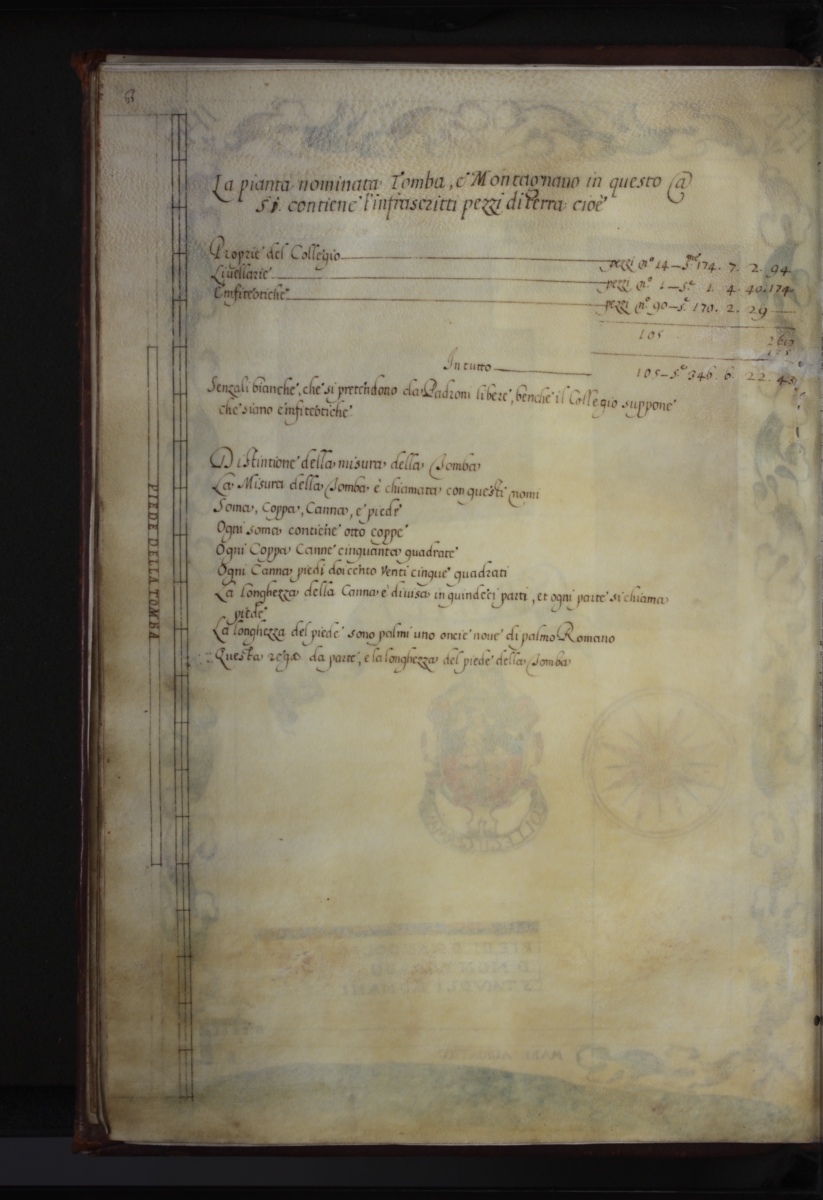 8
La pianta nominata Tomba, e Montagnano in questo @
si contiene l'infrascritti pezzi di terra cioè
Proprie del Collegio pezzi nº 14 – S.me 174. 7. 2. 94
Livellarie pezzi nº 1 – S.e 1. 4. 40. 174
Enfiteotiche pezzi nº 90 – S.e 170. 2. 29
105
In tutto 105 – S.e 346. 6. 22. 43
Senzali bianche, che si pretendono da Padroni libere, benche il Collegio suppone
che siano enfiteotiche
Distintione della misura della Tomba
La Misura della Tomba è chiamata con questi nomi
Soma, Coppa, Canna, e piede
Ogni soma contiene otto coppe
Ogni Coppa Canne cinquanta quadrate
Ogni Canna piedi doicento venti cinque quadrati
La longhezza della Canna è divisa in quindeci parti, et ogni parte si chiama
piede
La longhezza del piede sono palmi uno oncie nove di palmo Romano
Questa da parte, e la longhezza del piede della Tomba
PIEDE DELLA TOMBA